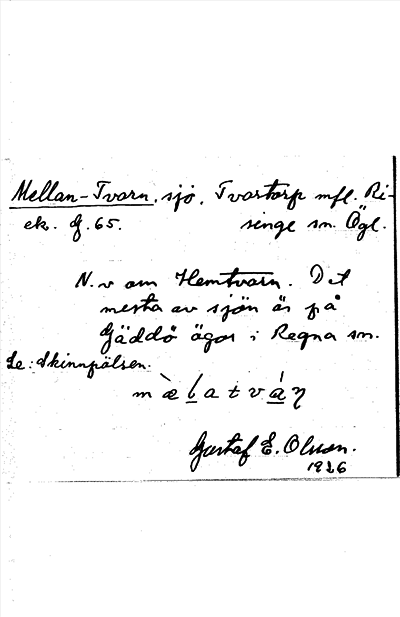 Mellan-Tvarn, sjö, Tvartorp mfl. Ri-
ek. g. 65. singe sn. Ögl.
N. v om Hemtvarn. Det
mesta av sjön är på
Gäddö ägor i Regna sn.
Se: Skinnpälsen.
mæ̀latváŋ
Gustaf E. Olsson.
1926